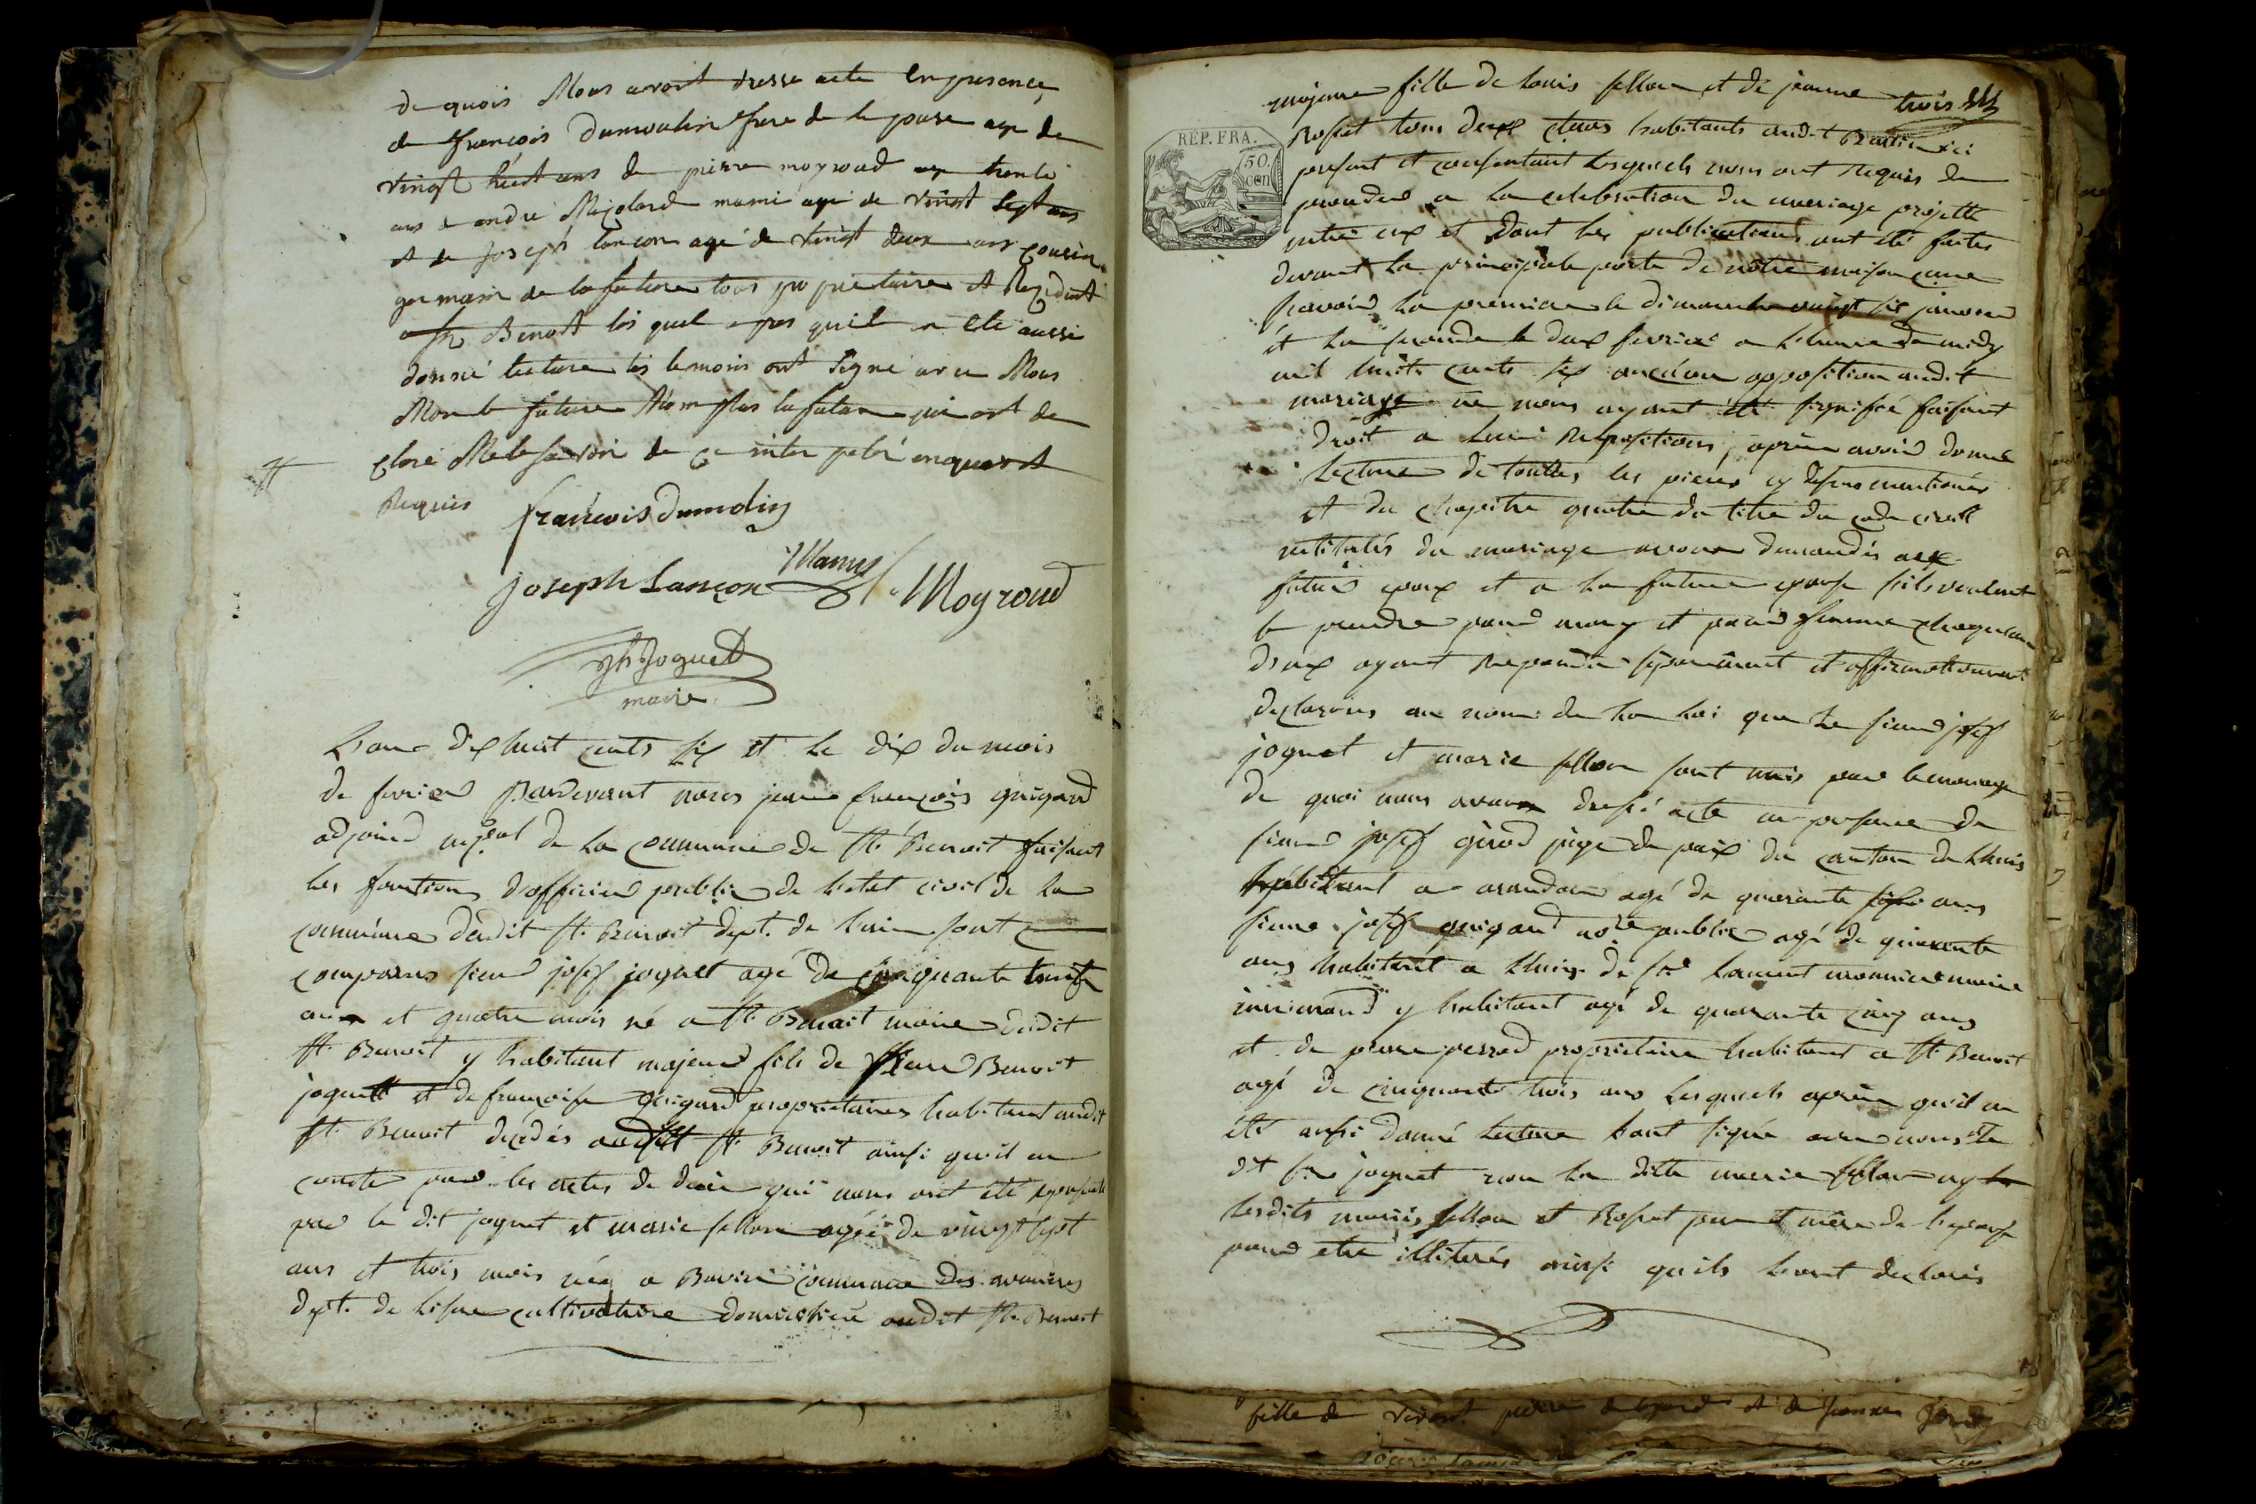 de quois Nous avont dresse acte En presence
de françois Dumoulin frere de le pouse age de
vingt huit ans de pierre moyroud age trente
ans de andré Mojolard mami agé de vingt sept ans
et de Joseph Lançon agé de vingt deux ans cousin
germain de la future tous propriétaires et Rezident
a St Benoit les quel apres quil a Eté aussi
donné lecture les temoins ont Signé avec Nous
Non le future Non plus la future qui ont de
claré Ne le savoir de ce inter pelé enquerit
Requis
françois Dumolin
Joseph Lançon
Moyroud
Jh Joguet
maire
L'an dix huit cents six et le dix du mois
de fevrier Pardevant nous jean françois guigard
adjoind de la commune de St. Benoit faisant
les fonctions d'officier public de l'etat civil de la
commune dudit St. Benoit dept. de l'ain sont
comparus sieur josef joguet agé de cinquante
ans et quatre mois né a St. Benoit maire dudit
St. Benoit y habitant majeur fils de Benoit
joguet et de françoise guigard proprietaires habitant audit
St. Benoit decédés audit St. Benoit ainsi qu'il en
conste par les actes de décès qui nous ont été
par le dit joguet et marie fellon agée de vingt sept
ans et trois mois née a commune des avenieres
dept. de lisere cultivatrice domiciliée audit St. Benoit
majeure fille de Louis fellon et de jeanne trois
REP. FRA.
50
cen
Rosset tous deux habitants audit ici
present et consentant lesquels nous ont requis de
proceder a la celebration du mariage projetté
entre eux et dont les publications ont été faites
devant la principale porte de notre maison come
savoir la premiere le dimanche vingt six janvier
et la seconde le deux fevrier a l'heure de midy
mil huit cents six aucune opposition audit
mariage ne nous ayant été signifié faisant
droit a leur requisitions, après avoir donné
lecture de touttes les pieces cy dessus mentionés
et du chapitre quatre du titre du code civil
intitulés du mariage avons demandés aux
futur epoux et a la future epouse s'ils veulent
se prendre pour mary et pour femme chaquun
d'eux ayant repondu séparément et affirmativement
declarons au nom de la loi que le sieur josef
joguet et marie fellon sont unis par le mariage
de quoi nous avons dressé acte en presence de
sieur josef girod juge de paix du canton de Lhuis
habitant a arandon agé de quarante ans
sieur josef guigard nore public agé de quarante
ans habitant a Lhuis de sr. Laurent monnier maire
y habitant agé de quarante cinq ans
et de pierre perrod propriétaire habitant a St. Benoit
agé de cinquante trois ans lesquels après qu'il en
été aussi donné lecture l'ont signé avec nous et le
dt sr. joguet non la ditte marie fellon ny
lesdits mariés fellon et Rosset pere et mère de l'epouse
pour etre illiterés ainsi qu'ils l'ont declarés
fille de vivant pierre et de